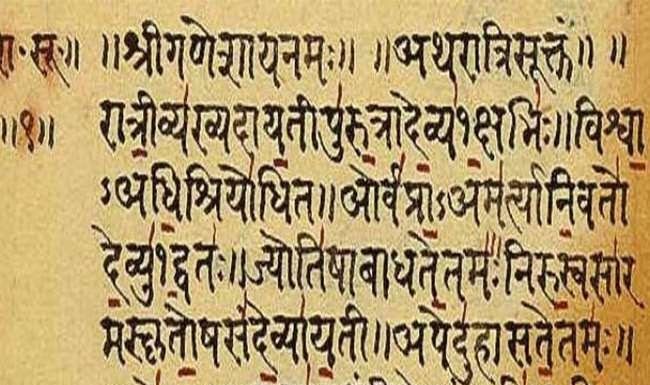 रा॰ सू॰॥ ॥श्रीगणेशायनमः॥ ॥अथरात्रिसूक्तं॥ ॥
॥१॥ रात्रीव्यख्यदायतीपुरुत्रादेव्य१क्षभिः॥विश्वा
ऽअधिश्रियोधित॥ओर्वप्राऽअमर्त्यानिवतो
देव्यु१द्वतः॥ज्योतिषाबाधतेतमः॥निरुस्वसार
मस्कृतोषसंदेव्यायती॥अपेदुहासतेतमः॥